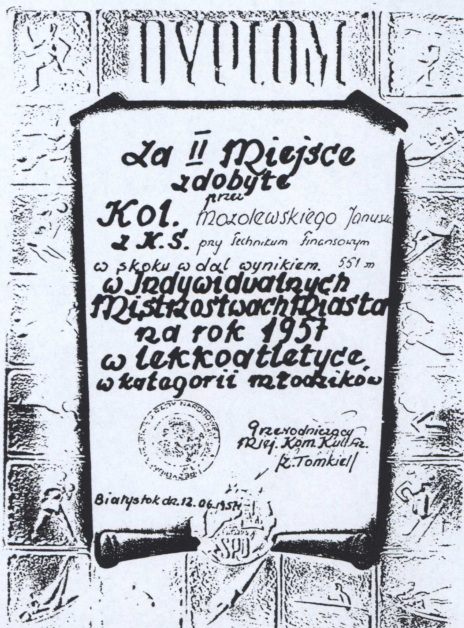 DYPLOM
Za II Miejsce
zdobyte
przez
Kol. Mozolewskiego Janusza
z K.S. przy Technikum Finansowym
w skoku w dal wynikiem. 551 m
w Indywidualnych
Mistrzostwach Miasta
na rok 1957
w lekkoatletyce
w kategorii młodzików
Przewodniczący
Miej. Kom. Kult. Fiz.
Z. Tomkiel
Białystok dz. 12.06.1957
SPD